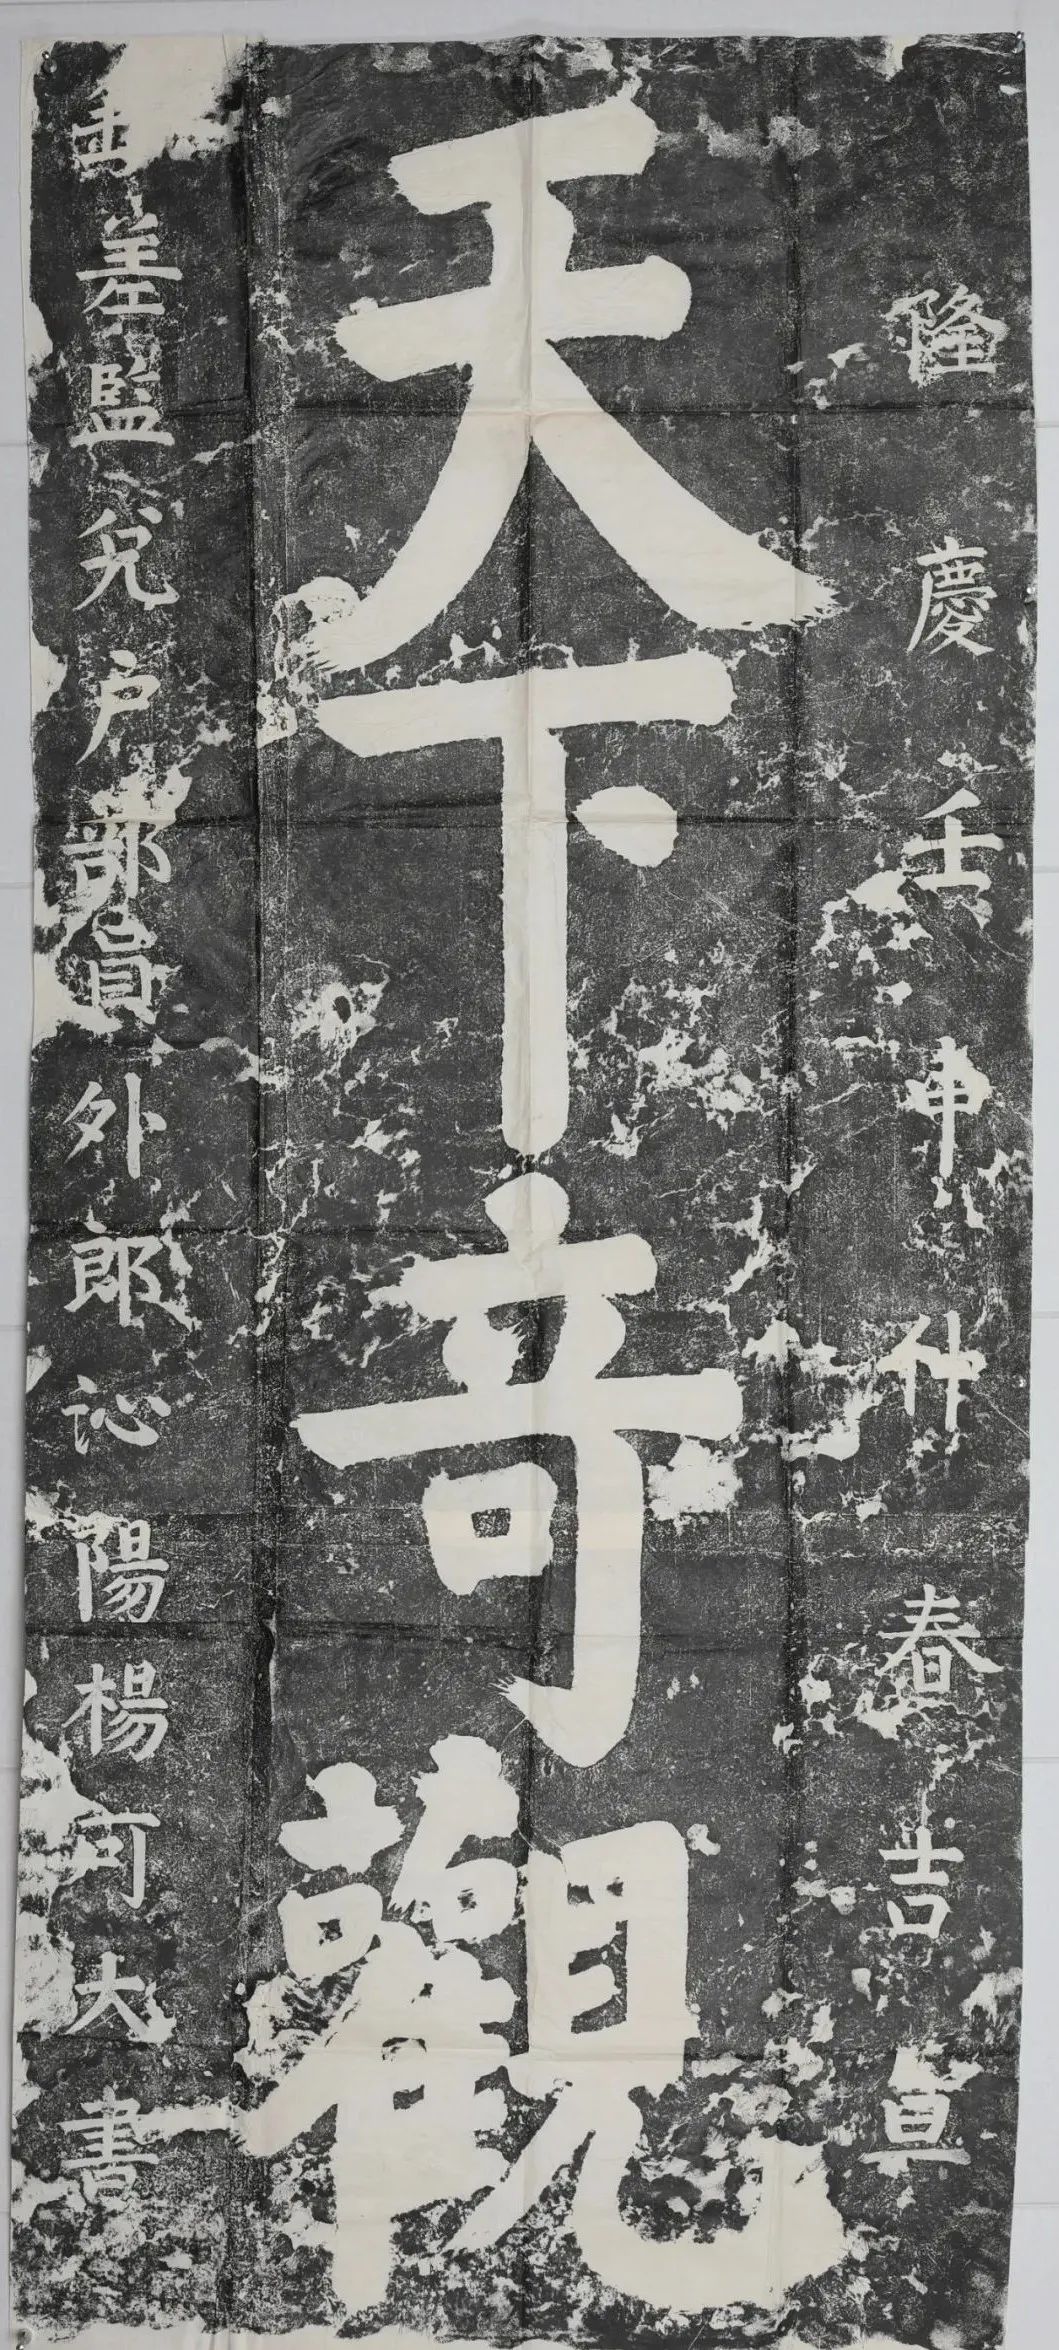 隆慶壬申仲春吉旦
天下奇觀
差監兌户部員外郎泌陽楊可大書